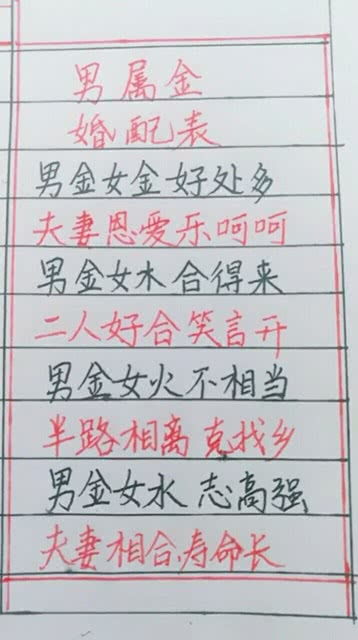 男属金
婚配表
男金女金好处多
夫妻恩爱乐呵呵
男金女木合得来
二人好合笑言开
男金女火不相当
半路相离克找乡
男金女水志高强
夫妻相合寿命长